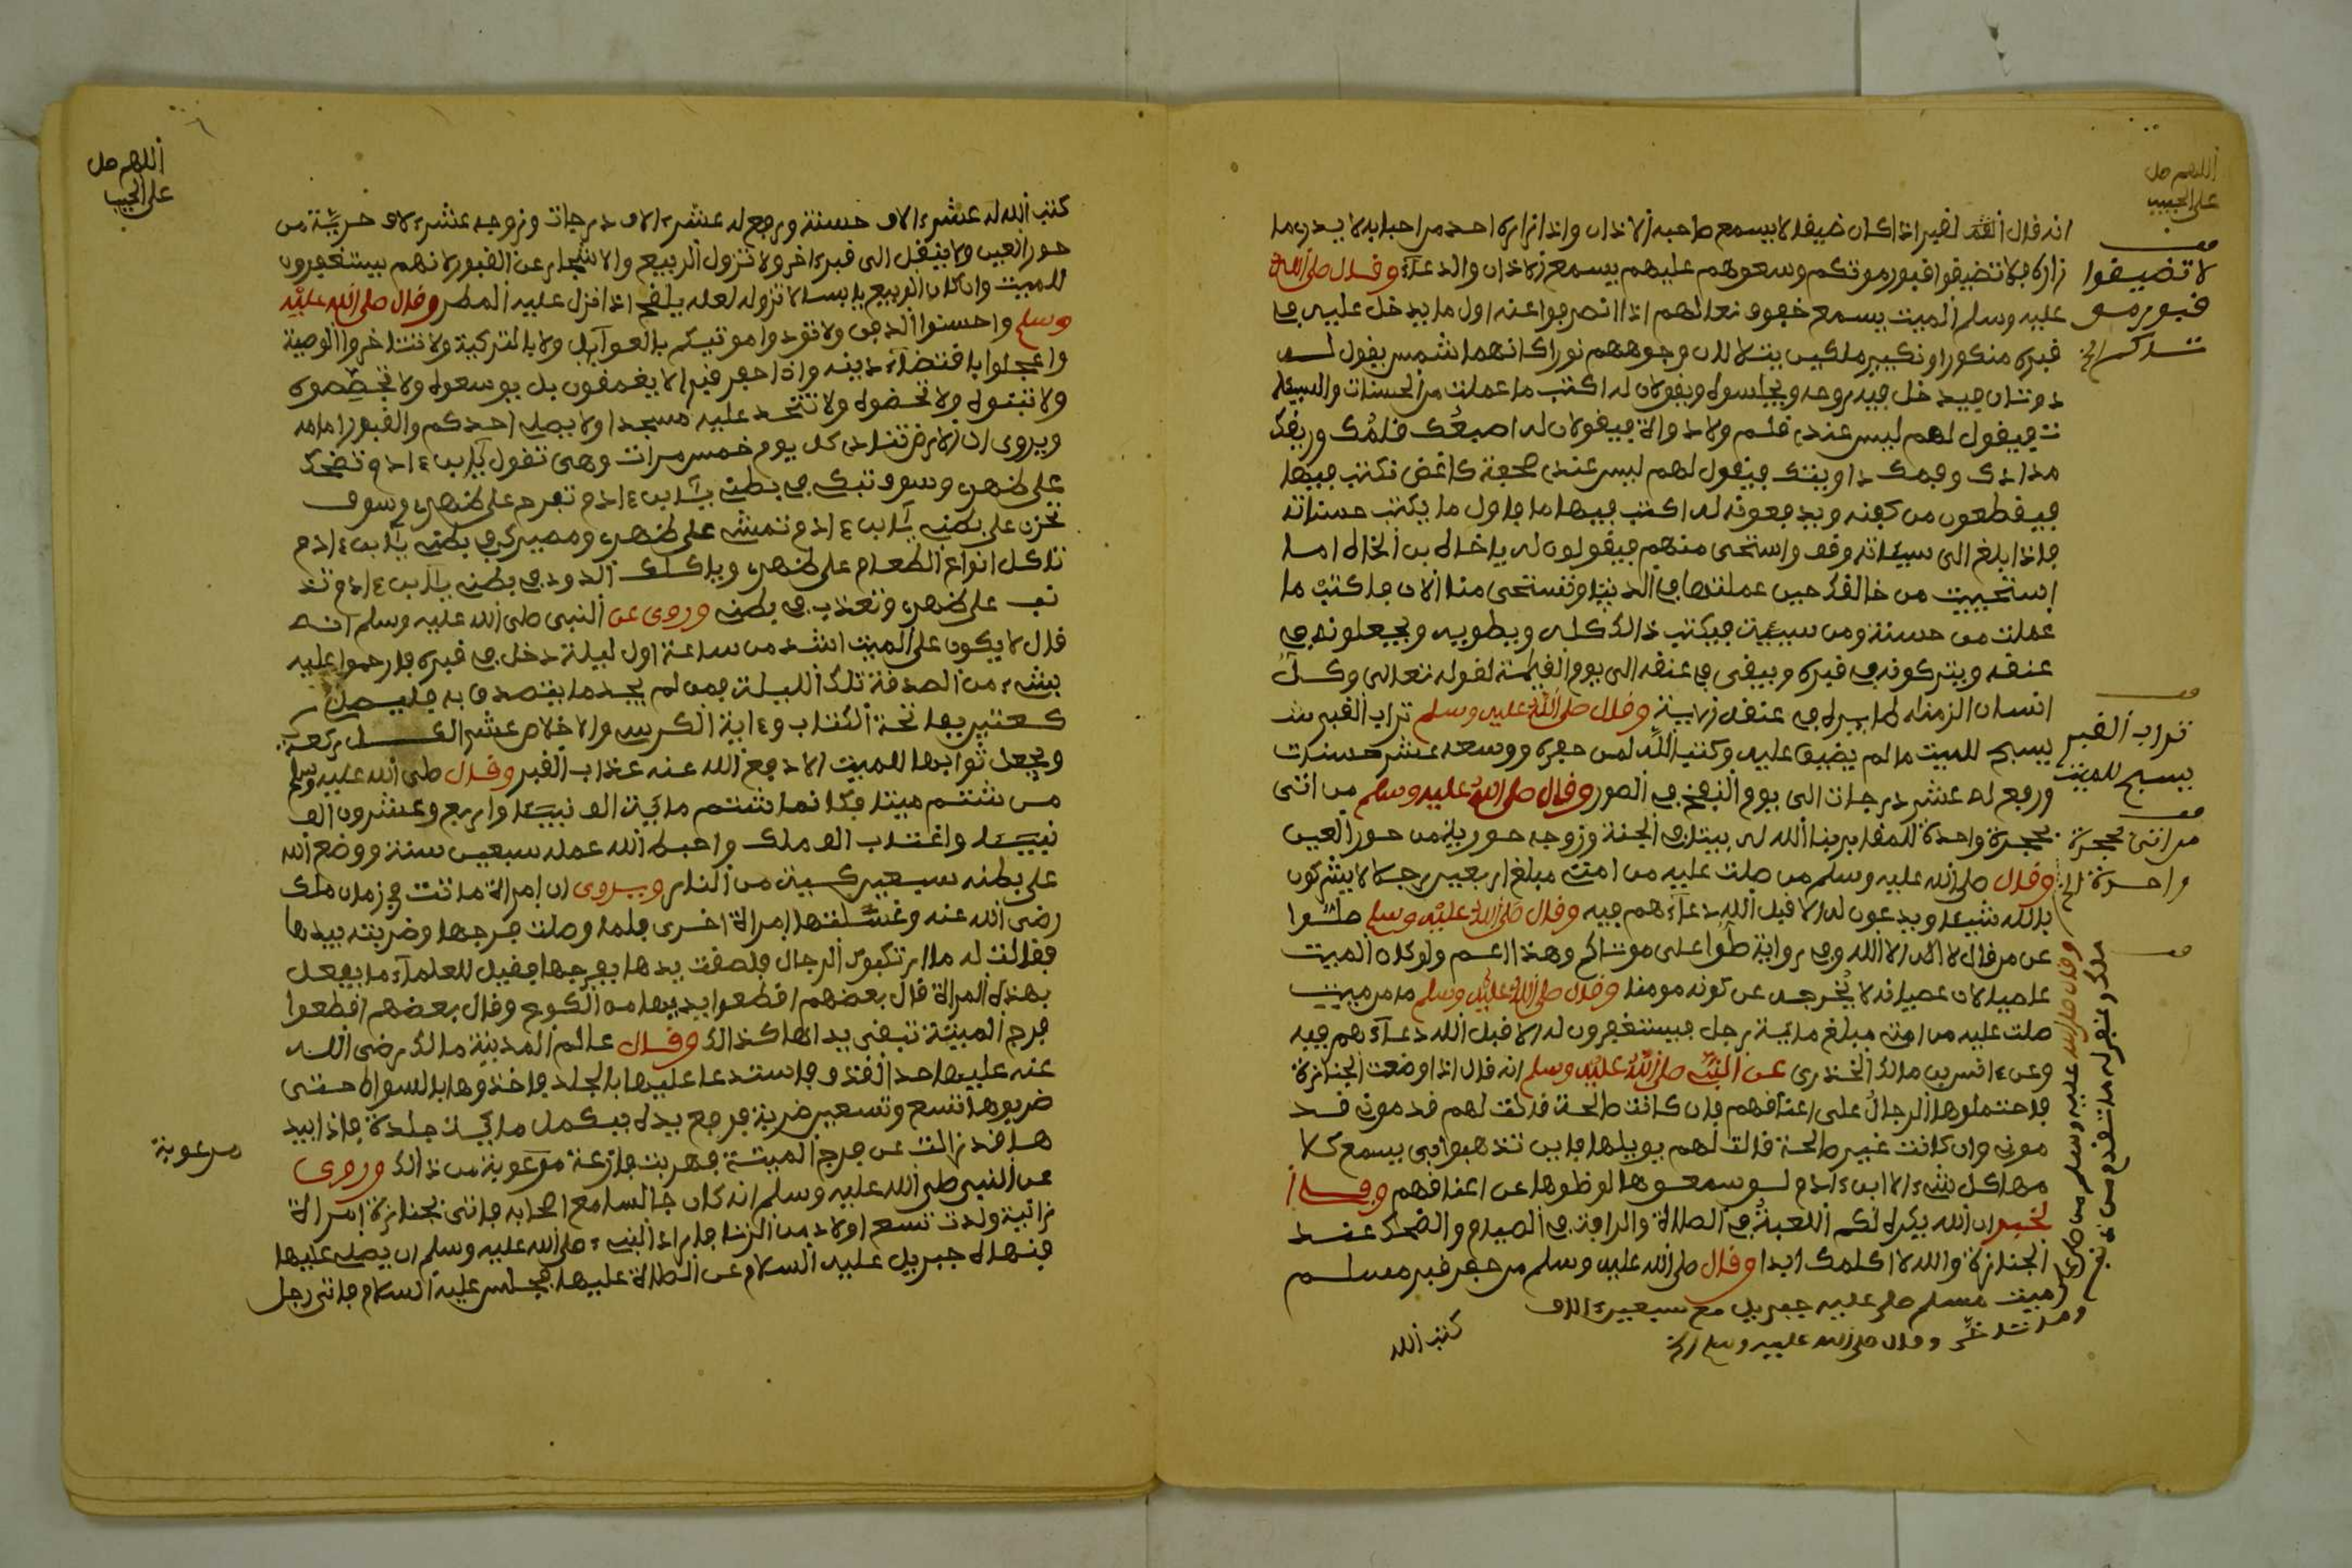 اللهم صل
على الحبيب
انه قال لقبر اذا كان ضيقا لا يسمع صاحبه الاذان واذا زاره احد من احبابه لا يدرى ما
زاره فلا تضيقوا قبور موتكم وسعوهم عليهم يسمع الاذان والدعاء وقال صلى الله
عليه وسلم الميت يسمع خفوف نعالهم اذا انصرفوا عنه اول ما يدخل عليه فى
قبره منكورا ونكير ملكين يتلالان وجوههم نورا كانهما شمس يقول له
فيدخل فيه روحه ويجلسوه ويقولان له اكتب ما عملت من الحسنات والسيئا
ت فيقول لهم ليس عندى قلم ولا دواة فيقولان له اصبعك قلمك وريقك
مدادك وفمك داويتك فيقول لهم ليس عندى صحفة كاغض نكتب فيها
فيقطعون من كفنه ويدفعونه له اكتب فيها ما فاول ما يكتب حسناته
فاذا بلغ الى سيئاته وقف واستحى منهم فيقولون له يا خاله بن الخاله اما
استحييت من خالقك حين عملتها فى الدنيا وتستحى منا الان فاكتب ما
عملت من حسنة ومن سيئة فيكتب ذالك كله ويطويه ويجعلونه فى
عنقه ويتركونه فى قبره ويبقى فى عنقه الى يوم القيمة لقوله تعالى وكل
انسان الزمناه طايره فى عنقه الاية وقال صلى الله عليه وسلم تراب القبر
يسبح للميت ما لم يضيق عليه وكتب الله لمن حفره ووسعه عشر حسنات
ورفع له عشر درجات الى يوم النفخ فى الصور وقال صلى الله عليه وسلم من اتى
بحجرة واحدة للمقابر بنا الله له بيتا فى الجنة وزوجه حورية من حور العين
وقال صلى الله عليه وسلم من صلت عليه من امتى مبلغ اربعين رجالا لا يشركون
بالله شيئا ويدعون له الا قبل الله دعاءهم فيه وقال صلى الله عليه وسلم صلوا
عن من قال لا اله الا الله وفى رواية صلوا على موتاكم وهذا اعم ولو كان الميت
عاصيا لان عصيانه لا يخرجه عن كونه مومنا وقال صلى الله عليه وسلم ما من ميت
صلت عليه من امتى مبلغ ماية رجل فيستغفرون له الا قبل الله دعاءهم فيه
وعن انس بن مالك الخذرى عن النبى صلى الله عليه وسلم انه قال اذا وضعت الجنازة
فاحتملوها الرجال على اعنافهم فان كانت صالحة قالت لهم قدمونى قد
مونى وان كانت غير صالحة قالت لهم يويلها فاين تذهبوا بى يسمع كلا
مها كل شىء الا ابن ءادم لو سمعوها لوظوها عن اعنافهم
لخبر ان الله يكره لكم اللعبة فى الصلاة والرافة فى الصيام والضحك عند
الجنازة والله لا اكلمك ابدا وقال صلى الله عليه وسلم من حفر قبر مسلم
كتب الله
لا تضيقوا
قبور مو
تاكم الخ
تراب القبر
يسبح للميت
من اتى بحجرة
واحدة الخ
وقال صلى الله عليه وسلم من صلى على
ميت مسلم صلى عليه جبريل مع سبعين الف
ملك وغفر له ما تقدم من ذنبه
وما تاخر وقال صلى الله عليه وسلم الخ
اللهم صل
على الحبيب
كتب الله له عشرء الاف حسنة ورفع له عشرء الاف درجات وزوجه عشرء لاف حرية من
حور العين ولا ينقل الى قبر ءاخر ولا تزول الربيع والاشجار عن القبور لانهم يستغفرون
للميت وان كان الربيع يابسا لا تزوله لعله يلقح اذا نزل عليه المطر وقال صلى الله عليه
وسلم واحسنوا الدفن ولا تؤدوا موتيكم بالعوايل ولا بالتزكية ولا تتاخروا الوصية
واعجلوا باقتضاء دينه واذا حفر قبرا لا يغمقون بل يوسعوه ولا تجصصوه
ولا تبنوه ولا تحضوه ولا تتخد عليه مسجدا ولا يصلى احدكم والقبور امامه
ويروى ان الارض تنادى كل يوم خمس مرات وهى تقول يا ابن ءادم تضحك
على ظهرى وسوف تبكى فى بطنى يا ابن ءادم تفرح على ظهرى وسوف
تحزن على بطنى يا ابن ءادم تمشى على ظهرى ومصيرك فى بطنى يا ابن ءادم
تاكل انواع الطعام على ظهرى وياكلك الدود فى بطنى يا ابن ءادم تذ
نب على ظهرى وتعذب فى بطنى وروى عن النبى صلى الله عليه وسلم انه
قال لا يكون على الميت اشد من ساعة اول ليلة دخل فى قبره فارحموا عليه
بشىء من الصدقة تلك الليلة فمن لم يجد ما يتصدق به فليصل
ركعتين بفاتحة الكتاب وءاية الكرسى والاخلاص عشر
ويجعل ثوابها للميت الا دفع الله عنه عذاب القبر وقال صلى الله عليه وسلم
من شتم ميتا فكانما شتم ماية الف نبيئا واربع وعشرون الف
نبيئا واغتاب الف ملك واحبط الله عمله سبعين سنة ووضع الله
على بطنه سبعين كبة من النار ويروى ان امراة ماتت فى زمان ملك
رضى الله عنه وغسلتها امراة اخرى فلما وصلت فرجها وضربته بيدها
فقالت له ما ارتكبوك الرجال فلصقت يدها بفرجها فقيل للعلماء ما يفعل
بهذه المراة قال بعضهم اقطعوا يديها من الكوع وقال بعضهم اقطعوا
فرج الميتة تبقى يداها كذالك وقال عالم المدينة مالك رضى الله
عنه عليها حد القذف فاستدعا عليها بالجلد فاخذوها بالسواط حتى
ضربوها تسع وتسعين ضربة فرفع يده فيكمل ماية جلدة فاذا بيد
ها قد زالت عن فرج الميتة فهربت فازعة مرعوبة من ذالك وروى
عن النبى صلى الله عليه وسلم انه كان جالسا مع اصحابه فاتى بجنازة امراة
زانية ولدت تسع اولاد من الزنا فاراد النبىء صلى الله عليه وسلم ان يصلى عليها
فنهاه جبريل عليه السلام عن الصلاة عليها فجلس عليه السلام فاتى رجل
مرعوبة